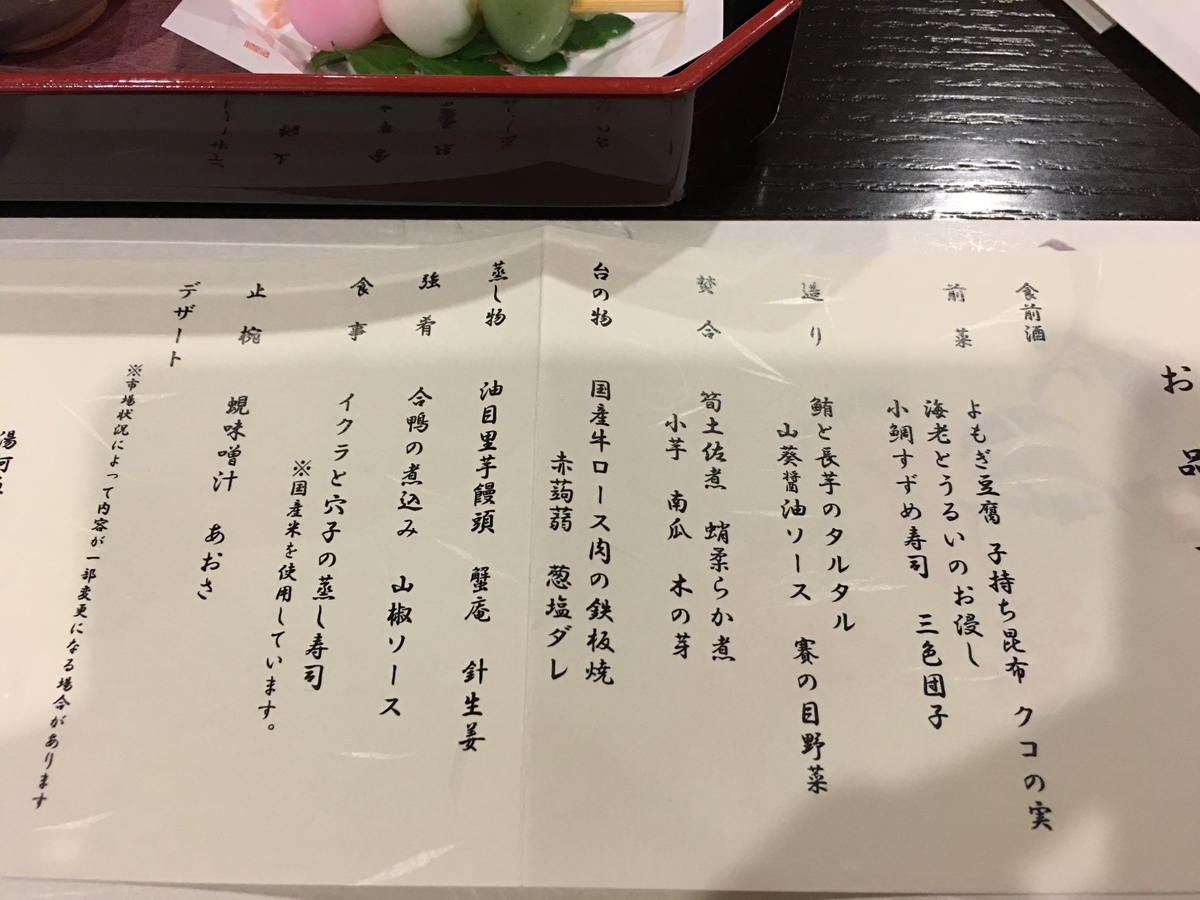 お品
食前酒
前菜
よもぎ豆腐 子持ち昆布 クコの実
海老とうるいのお浸し
小鯛すずめ寿司 三色団子
造り
鮪と長芋のタルタル
山葵醤油ソース 賽の目野菜
焚合
筍土佐煮 蛸柔らか煮
小芋 南瓜 木の芽
台の物
国産牛ロース肉の鉄板焼
赤蒟蒻 葱塩ダレ
蒸し物
油目里芋饅頭 蟹庵 針生姜
強肴
合鴨の煮込み 山椒ソース
食事
イクラと穴子の蒸し寿司
※国産米を使用しています。
止椀
蜆味噌汁 あおさ
デザート
※市場状況によって内容が一部変更になる場合があります
湯河